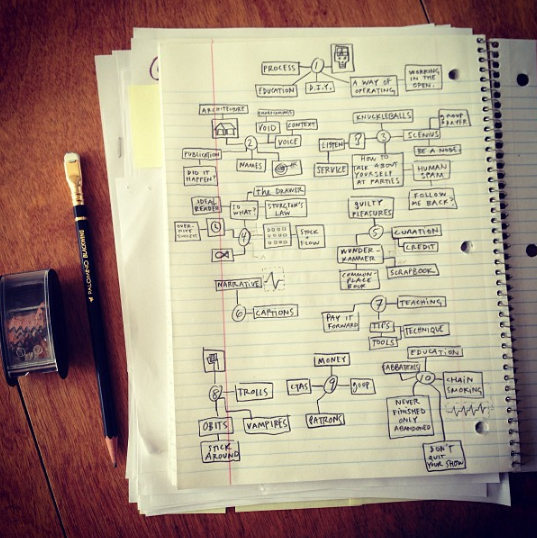 PROCESS
1
EDUCATION
D.I.Y.
A WAY OF
OPERATING
WORKING
IN THE
OPEN.
ARCHITECTURE
VOID
CONTEXT
VOICE
2
PUBLICATION
DID IT
HAPPEN?
NAMES
KNUCKLEBALLS
LISTEN
?
3
SCENIUS
SERVICE
HOW TO
TALK ABOUT
YOURSELF
AT PARTIES
BE A NODE
HUMAN
SPAM
FOLLOW
ME BACK?
THE DRAWER
IDEAL
READER
SO
WHAT?
STURGEON'S
LAW
4
STOCK
+
FLOW
GUILTY
PLEASURES
5
CURATION
CREDIT
WUNDER-
KAMMER
SCRAPBOOK
COMMON-
PLACE
BOOK
NARRATIVE
6
CAPTIONS
7
TEACHING
PAY IT
FORWARD
TIPS
TECHNIQUE
TOOLS
8
TROLLS
OBITS
VAMPIRES
STICK
AROUND
MONEY
9
CTAS
GOOP
PATRONS
EDUCATION
10
CHAIN
SMOKING
NEVER
FINISHED
ONLY
ABANDONED
DON'T
QUIT
YOUR SHOW
PALOMINO BLACKWING